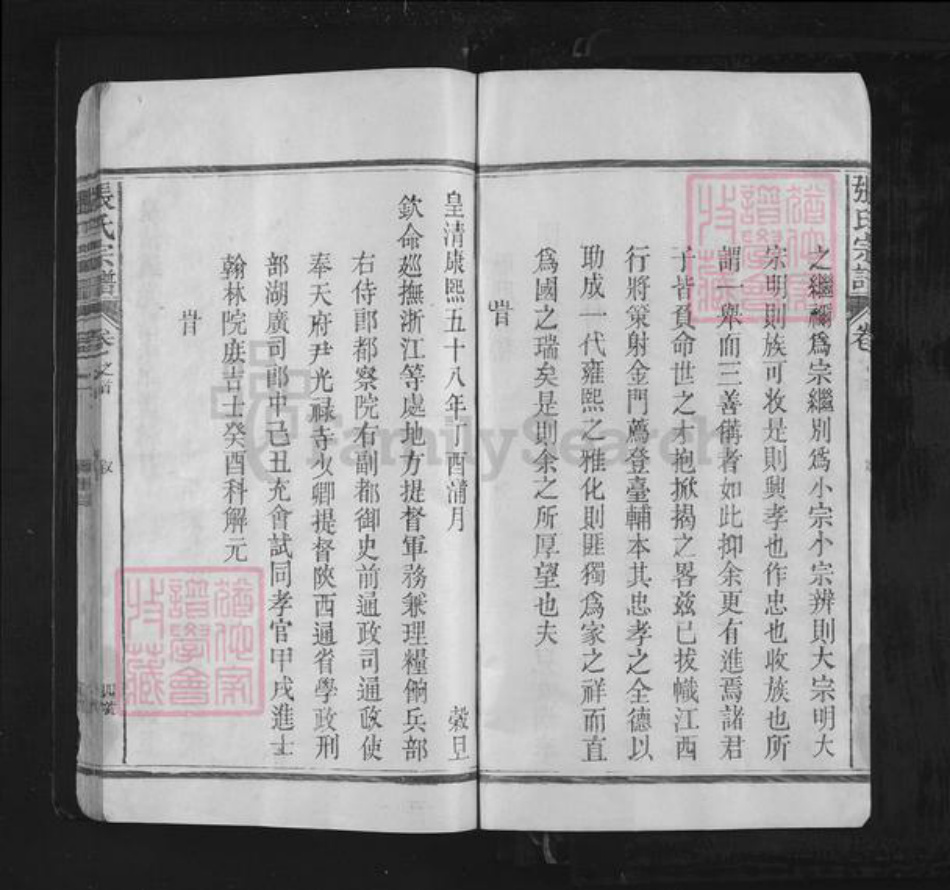 張氏宗譜 卷
之繼禰爲宗繼別爲小宗小宗辨則大宗明大
宗明則族可收是則興孝也作忠也收族也所
謂一舉而三善備者如此抑余更有進焉諸君
子皆負命世之才抱掀揭之畧兹已拔幟江西
行將策射金門薦登臺輔本其忠孝之全德以
助成一代雍熙之雅化則匪獨爲家之祥而直
爲國之瑞矣是則余之所厚望也夫
旹
皇清康熙五十八年丁酉蒲月 榖旦
欽命廵撫浙江等處地方提督軍務兼理糧餉兵部
右侍郎都察院右副都御史前通政司通政使
奉天府尹光祿寺少卿提督陝西通省學政刑
部湖廣司郎中己丑充會試同考官甲戌進士
翰林院庶吉士癸酉科解元
旹
張氏宗譜 卷之首
猶他家譜學會收藏
猶他家譜學會收藏
FamilySearch